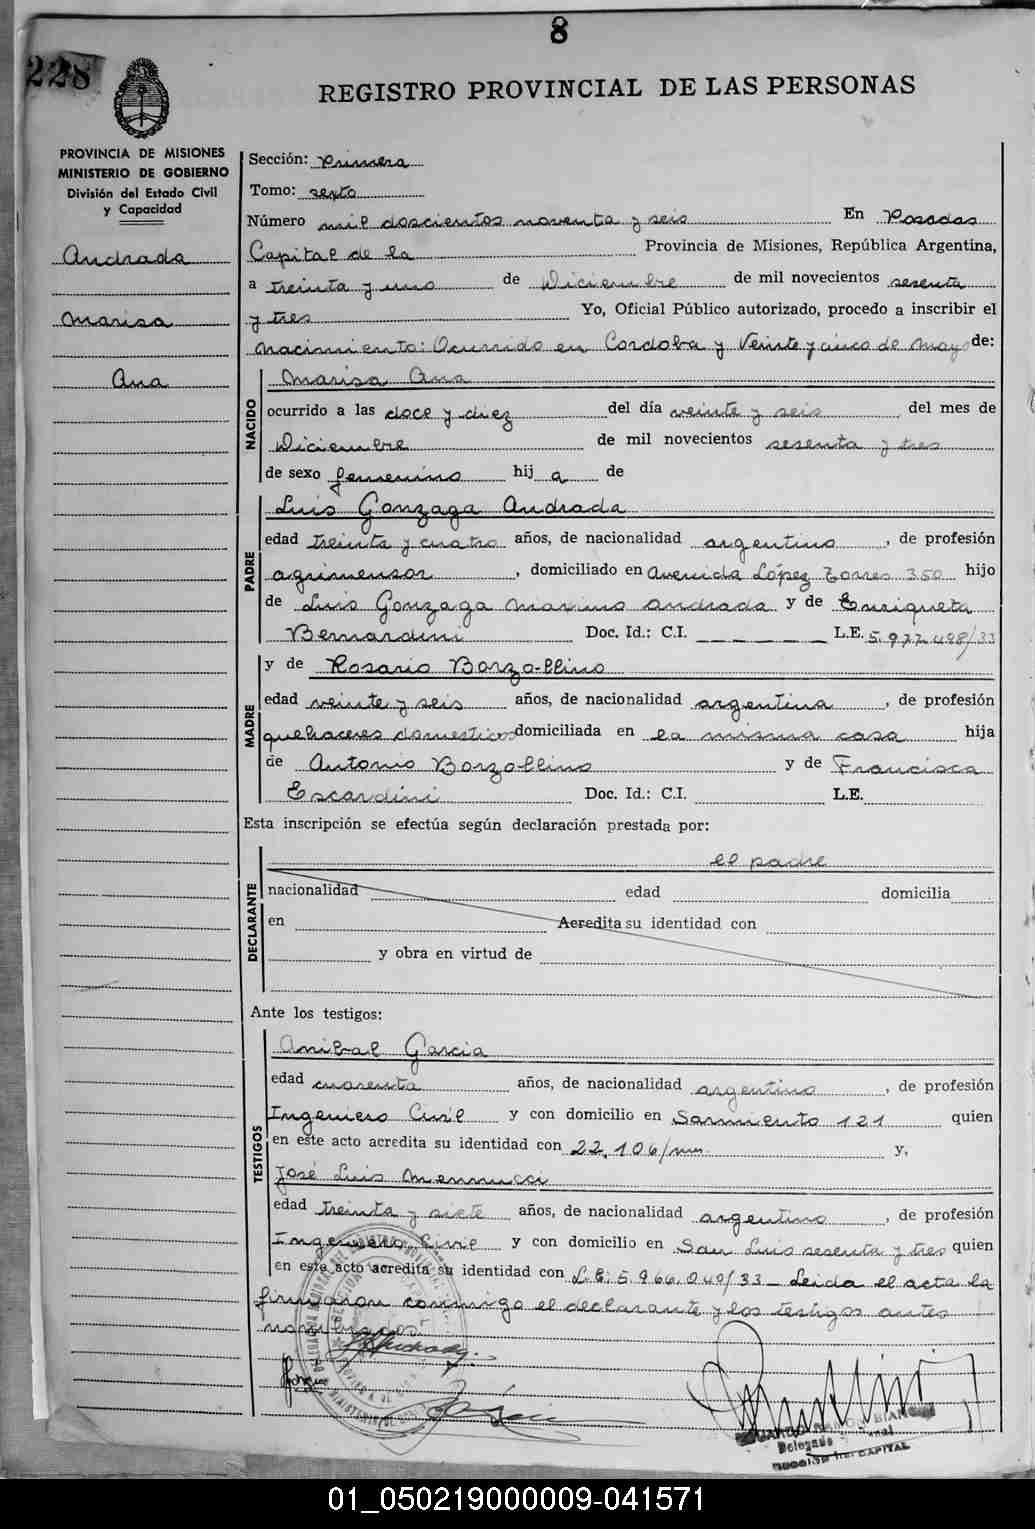 8
228
REGISTRO PROVINCIAL DE LAS PERSONAS
PROVINCIA DE MISIONES
MINISTERIO DE GOBIERNO
División del Estado Civil
y Capacidad
Andrada
Marisa
Ana
Sección: Primera
Tomo: sexto
Número mil doscientos noventa y seis En Posadas
Capital de la Provincia de Misiones, República Argentina,
a treinta y uno de Diciembre de mil novecientos sesenta
y tres Yo, Oficial Público autorizado, procedo a inscribir el
nacimiento: Ocurrido en Cordoba y Veinte y cinco de Mayo de:
NACIDO
Marisa Ana
ocurrido a las doce y diez del día veinte y seis del mes de
Diciembre de mil novecientos sesenta y tres
de sexo femenino hij a de
PADRE
Luis Gonzaga Andrada
edad treinta y cuatro años, de nacionalidad argentino, de profesión
agrimensor, domiciliado en Avenida López Torres 350 hijo
de Luis Gonzaga Maximo Andrada y de Enriqueta
Bernardini Doc. Id.: C.I. — — — — — — L.E. 5.972.498/33
MADRE
y de Rosario Borzo-llino
edad veinte y seis años, de nacionalidad argentina, de profesión
quehaceres domesticos domiciliada en la misma casa hija
de Antonio Borzollino y de Francisca
Escardini Doc. Id.: C.I. L.E.
Esta inscripción se efectúa según declaración prestada por:
DECLARANTE
el padre
nacionalidad edad domicilia
en Acredita su identidad con
y obra en virtud de
Ante los testigos:
TESTIGOS
Anibal Garcia
edad cuarenta años, de nacionalidad argentino, de profesión
Ingeniero Civil y con domicilio en Sarmiento 121 quien
en este acto acredita su identidad con 22.106/mm. y,
José Luis Mennucci
edad treinta y siete años, de nacionalidad argentino, de profesión
Ingeniero Civil y con domicilio en San Luis sesenta y tres quien
en este acto acredita su identidad con L.E: 5.966.040/33 - Leida el acta la
firmaron conmigo el declarante y los testigos antes
nombrados.
Delegado
CAPITAL
01_050219000009-041571